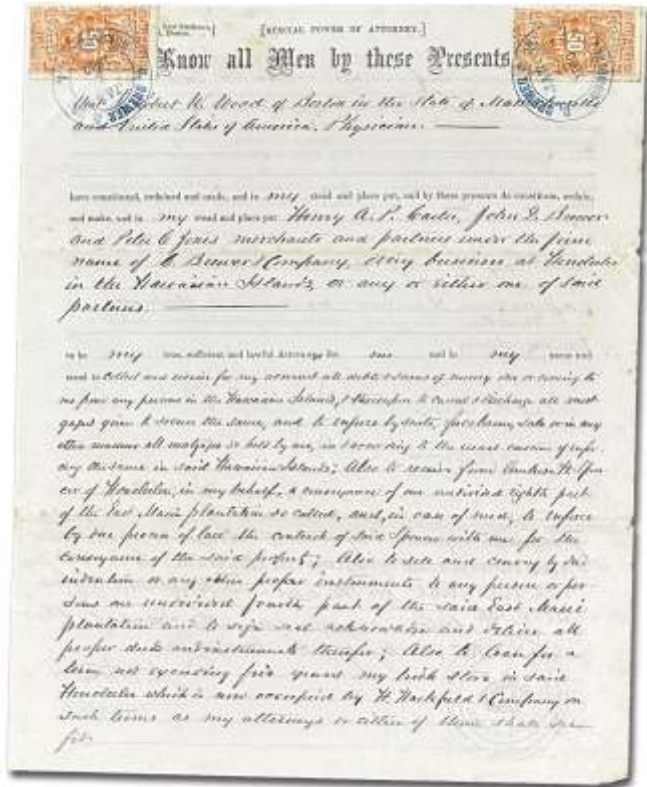 [SPECIAL POWER OF ATTORNEY.]
Know all Men by these Presents
That Robert W. Wood of Boston in the State of Massachusetts
and United States of America, Physician.
have constituted, ordained and made, and in my stead and place put, and by these presents do constitute, ordain,
and make, and in my stead and place put Henry A. P. Carter, John D. Brewer
and Peter C Jones merchants and partners under the firm
name of C. Brewer & Company, doing business at Honolulu
in the Hawaiian Islands, or any or either one of said
partners.
to be my true, sufficient and lawful Attorneys for me and in my name and
stead to collect and receive for my account all debts & sums of money due or owing to
me from any persons in the Hawaiian Islands, & thereupon to cancel & discharge all mort
gages given to secure the same, and to enforce by suits, foreclosure, sale or in any
other manner all mortgages so held by me, in according to the usual custom of enfor
cing the same in said Hawaiian Islands; Also to receive from
of Honolulu, in my behalf, a conveyance of one undivided eighth part
of the East Maui plantation so called, and, in case of need, to enforce
by due process of law the contract of said Spencer with me for the
conveyance of the said property; Also to sell and convey by
indenture or any other proper instruments to any person or per
sons one undivided fourth part of the said East Maui
plantation and to sign seal acknowledge and deliver all
proper deeds and instruments therefor; Also to lease for a
term not exceeding five years my brick store in said
Honolulu which is now occupied by H. Hackfeld & Company on
such terms as my attorneys or either of them shall see
fit.
50
50